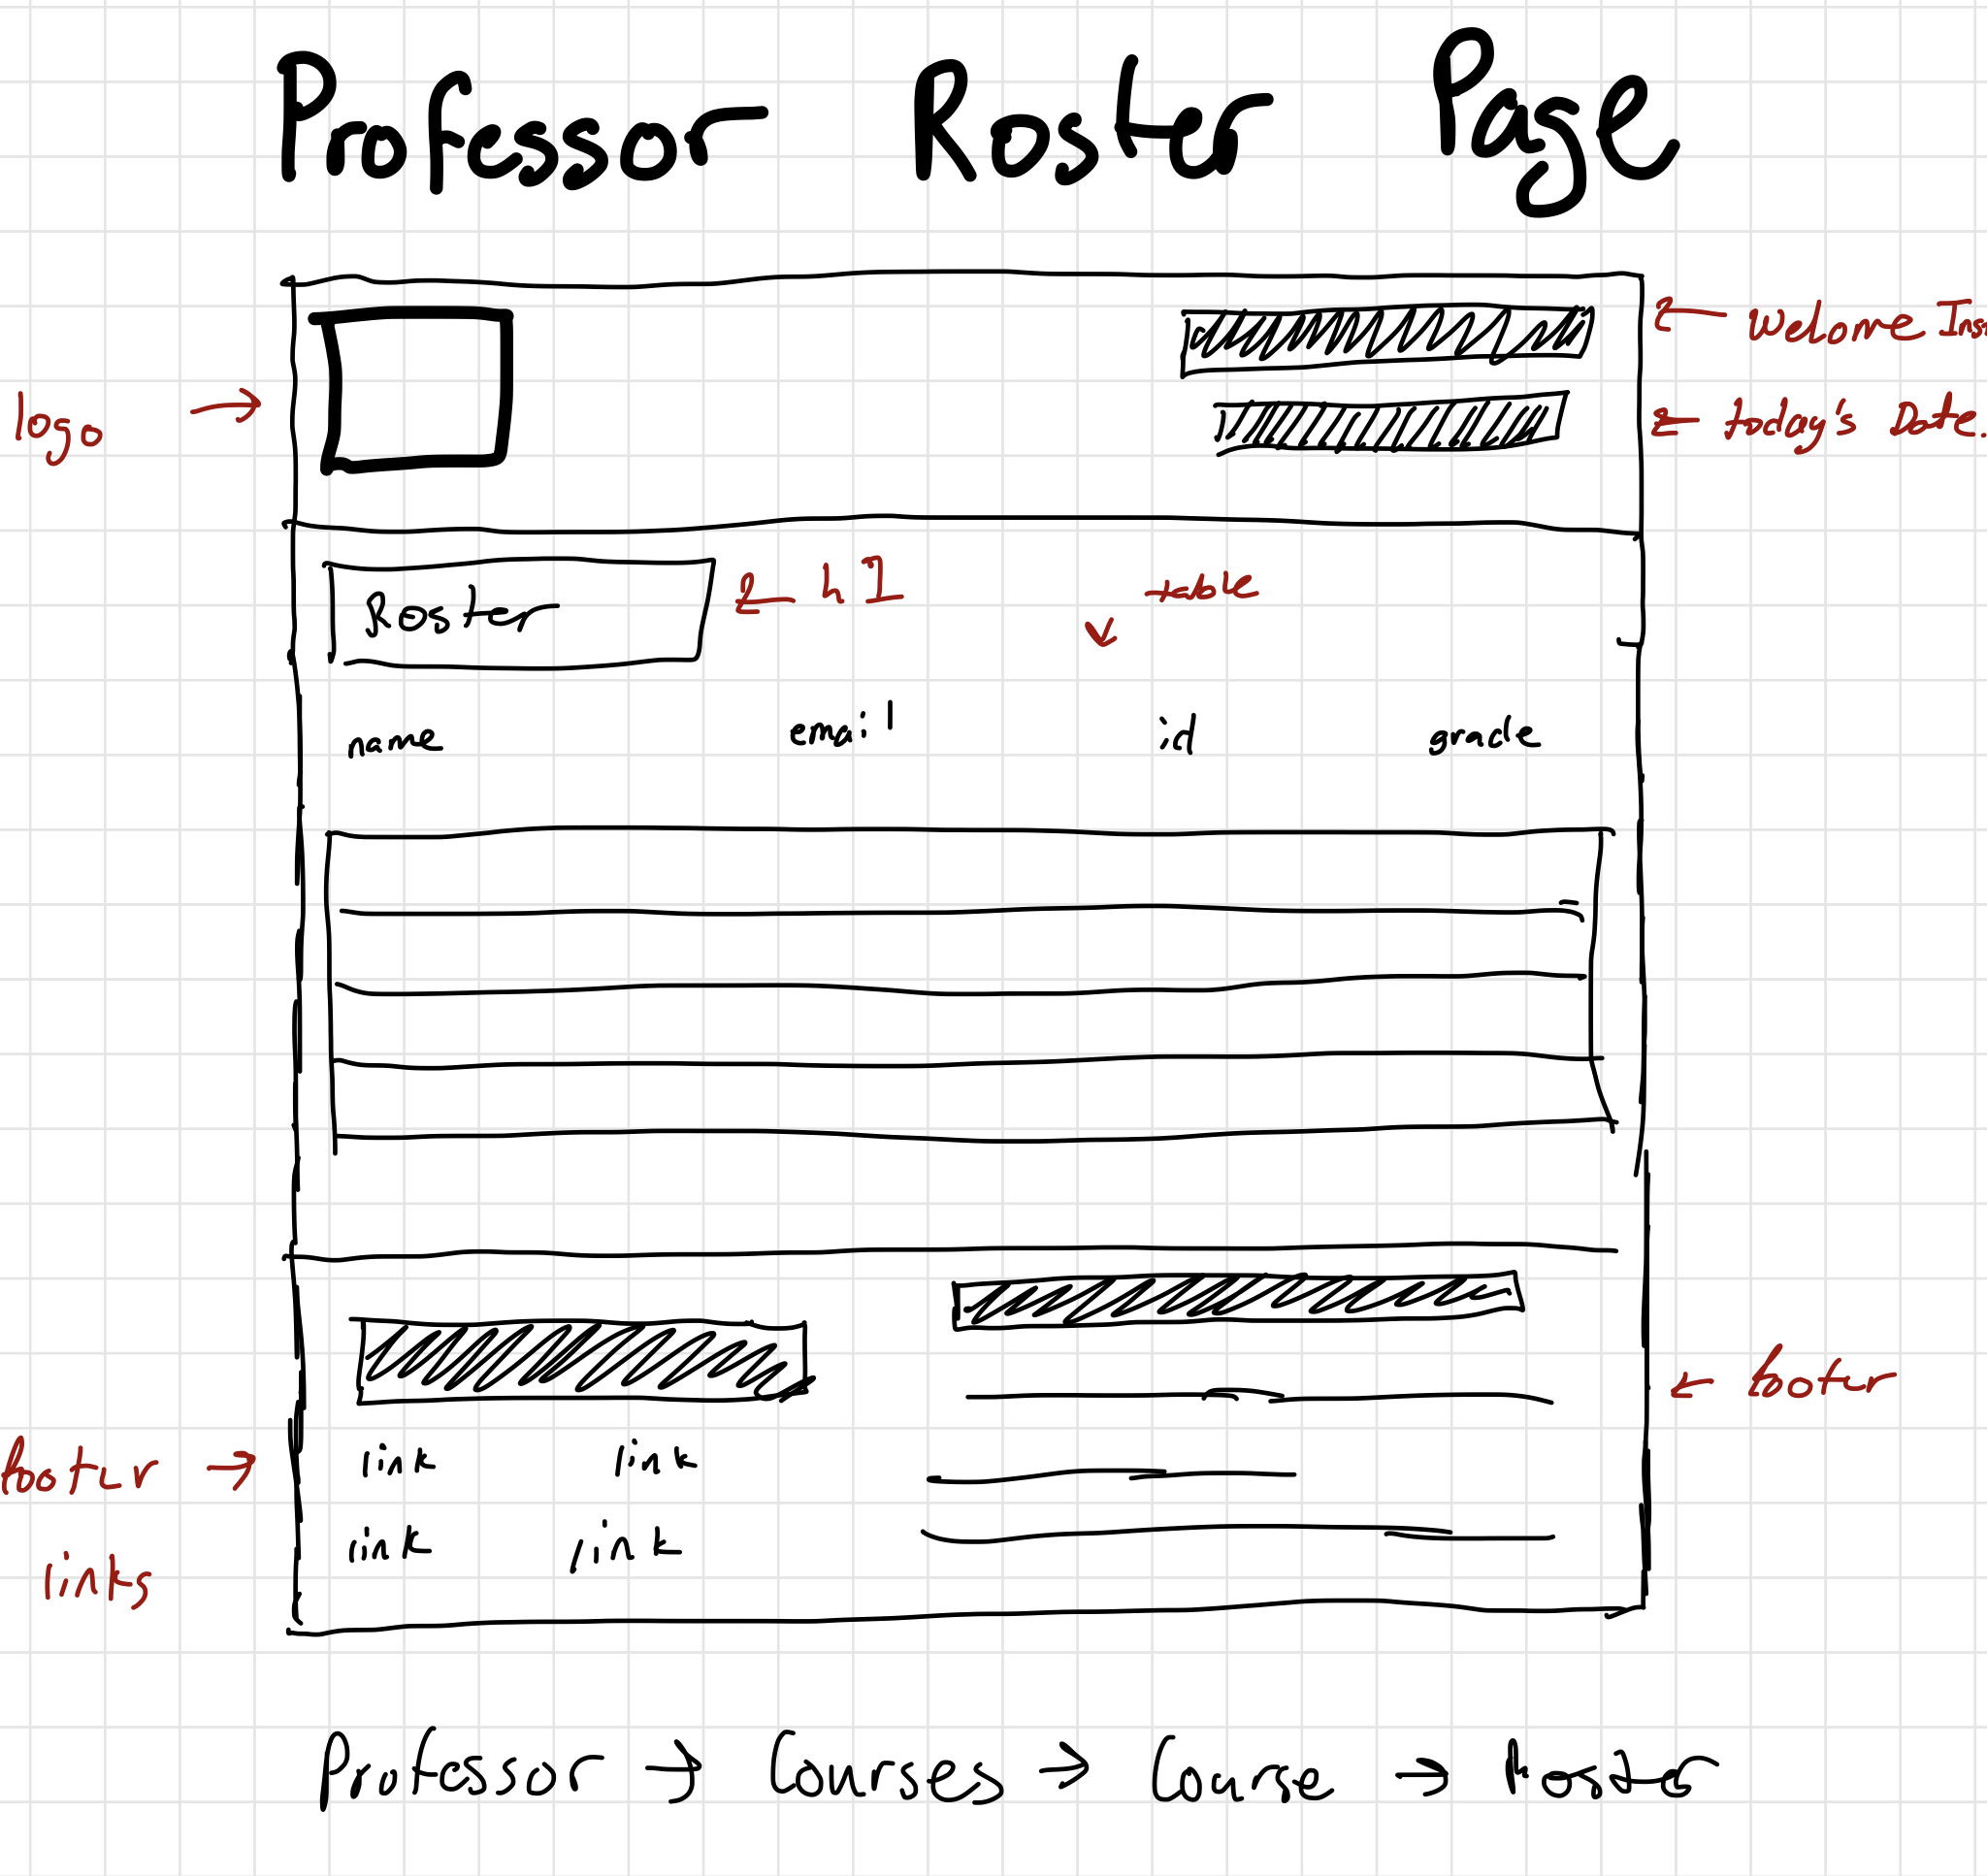 Professor Roster Page
Welcome Ins
logo
today's Date.
Roster
h1
table
name email id grade
footer
footer
link link
link link
links
Professor → Courses → Course → Roster